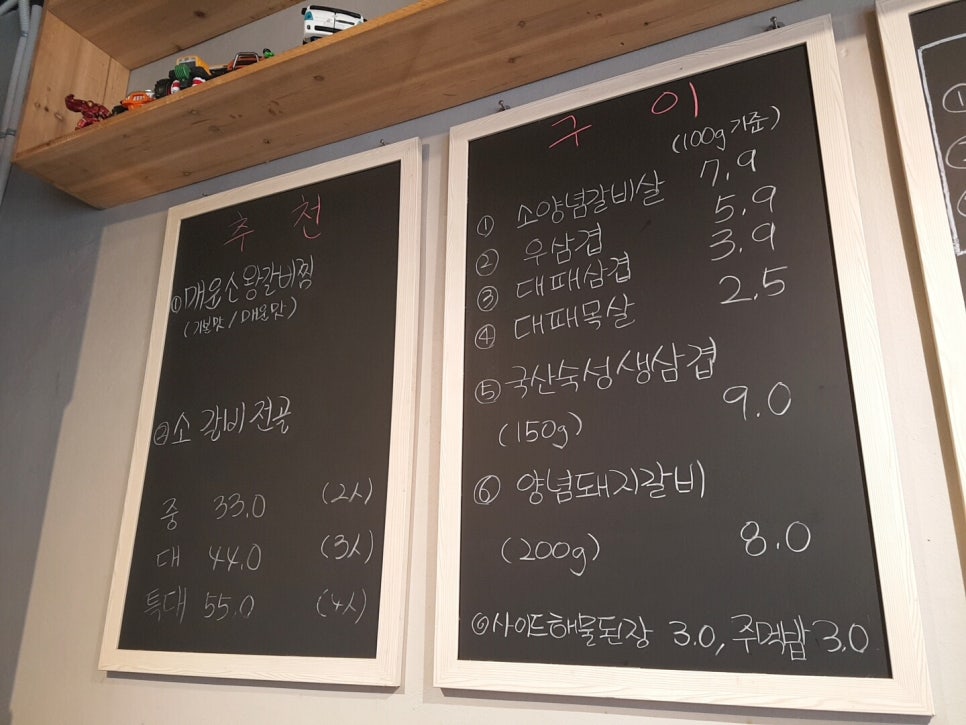 추 천
① 매운소왕갈비찜
(기본맛 / 매운맛)
② 소 갈비전골
중 33.0 (2人)
대 44.0 (3人)
특대 55.0 (4人)
구 이
(100g 기준)
① 소양념갈비살 7.9
② 우삼겹 5.9
③ 대패삼겹 3.9
④ 대패목살 2.5
⑤ 국산숙성생삼겹
(150g) 9.0
⑥ 양념돼지갈비
(200g) 8.0
⑥ 사이드해물된장 3.0, 주먹밥 3.0
①
②